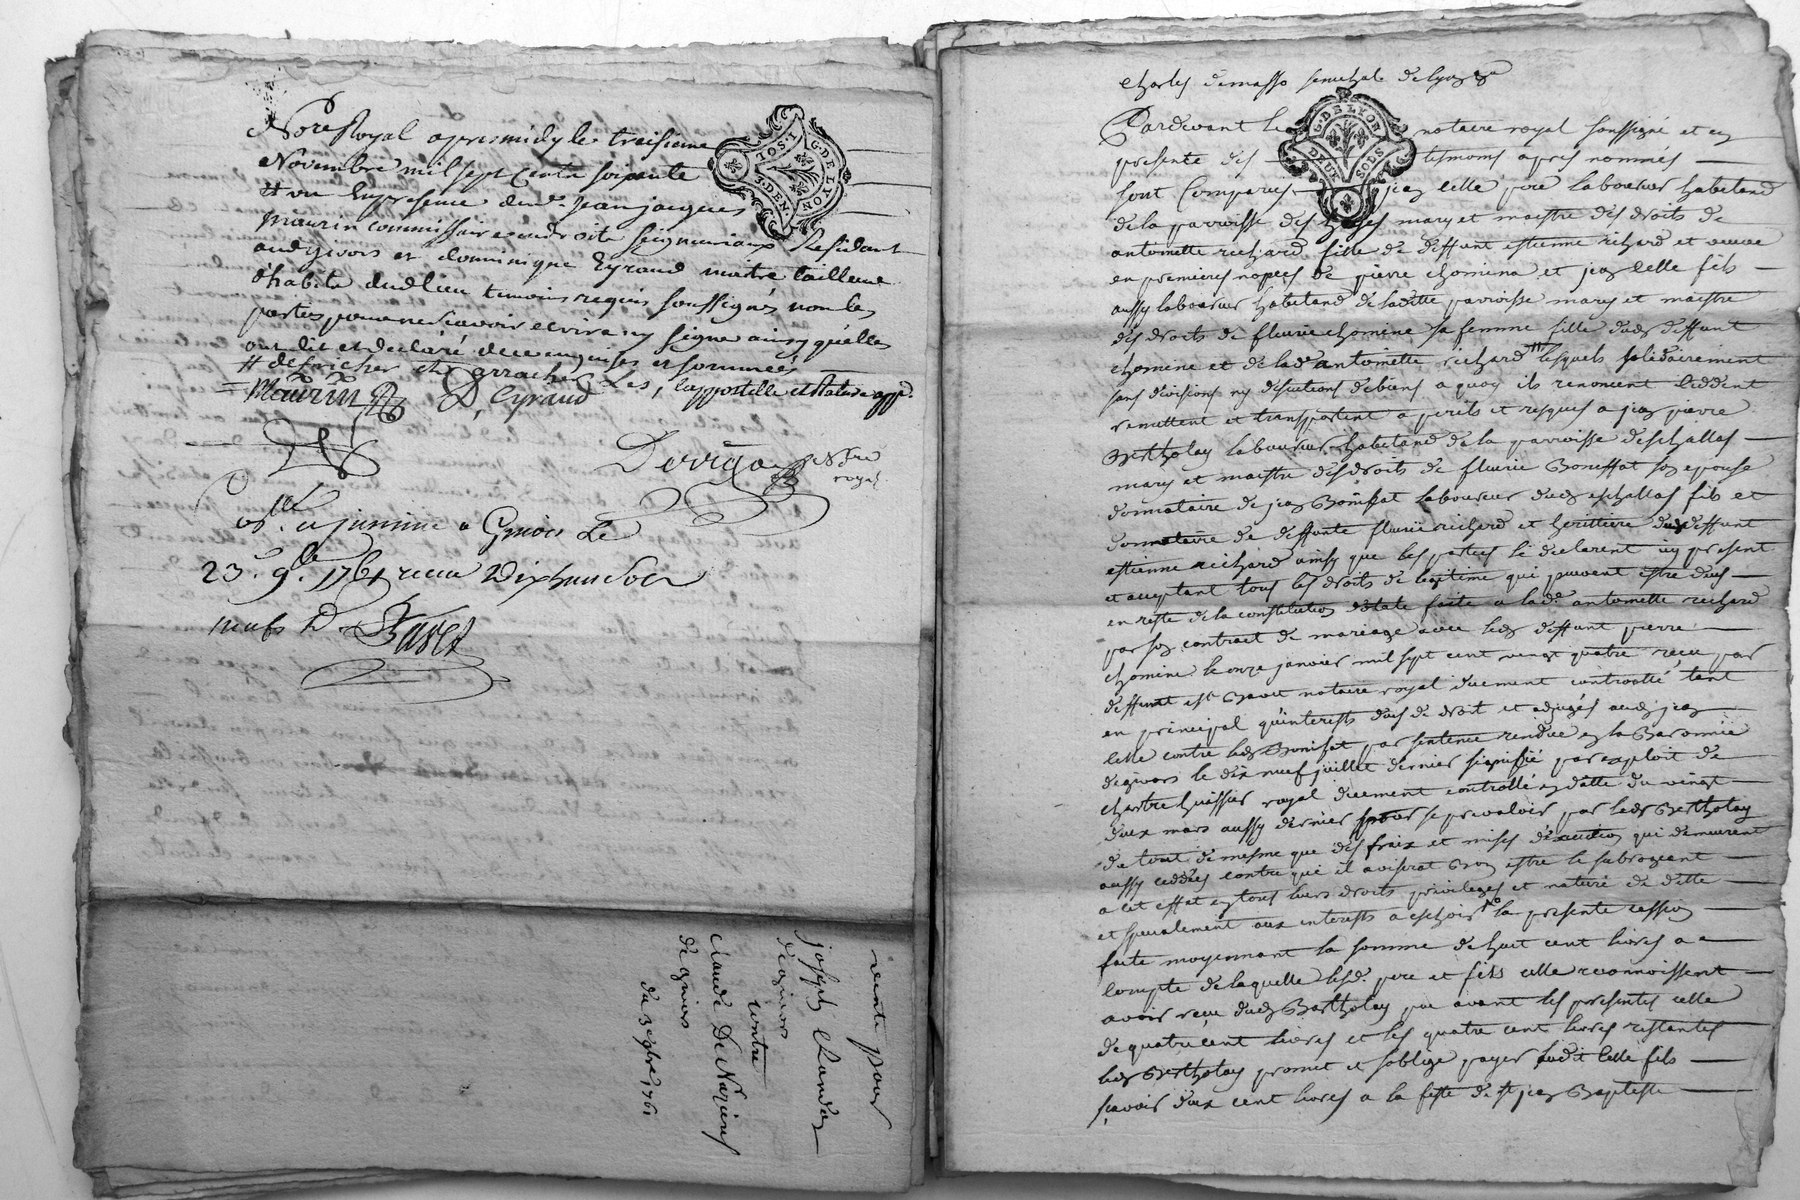 Nore Royal apres midy le troisieme
Novembre mil sept cents soixante
# un En presence de mre Jean jacques
maurin commissaire en droits seigneuriaux Residant
audt givors et dominique Eyraud maitre tailleur
d'habits dudt lieu temoins requis soussignés non les
parties pour ne scavoir ecrire ny signe ainsy qu'elles
ont dit et declaré de ce enquises et sommées
# defricher arracher les, l'appostille et appé.
= Maurin D, Eyraud
Nore
royal
a Givors Le
23. 9. 1761 recu Dix huit sols
neuf D.
vente pour
joseph Chandon
de givors
contre
claude De Nazieux
de givors
du 3e 9bre 1761
G. DE LYON
TOS. 1
3. DEN.
Charles demasso senechal de lyon
G. DE LYON
DEUX SOLS
Pardevant Le notaire royal soussigné et en
presente des tesmoins apres nommés
sont Comparus jean celle pere laboureur habitand
de la parroisse des hayes mary et maistre des droits de
antoinette richard fille de deffunt estienne richard et veuve
en premieres nopces de pierre chomina et jean celle fils
aussy laboureur habitand de ladte parroisse mary et maistre
des droits de fleurie chomine sa femme fille dudt deffunt
chomine et de lade antoinette richard lesquels solidairement
sans division ny discutions de biens a quoy ils renoncent ceddent
remettent et transportent a perils et risques a jean pierre
Bertholay laboureur habitand de la parroisse deschallas
mary et maistre des droits de fleurie Boneffat son epouse
donnataire de jean Bonnefat laboureur dudt eschallas fils et
donnataire de deffunte fleurie richard et herittiere dudt deffunt
estienne richard ainsy que les parties le declarent icy present
et acceptant tous les droits de legitime qui peuvent estre deus
en reste de la constitution dotale faite a lade antoinette richard
par son contract de mariage avec ledt deffunt pierre
chomine le onze janvier mil sept cent vingt quatre recu par
deffunt notaire royal duement controllé tant
en principal qu'interests deus de droit et adjugés audt jean
celle contre ledt Bonifat par sentence rendue en la Baronnie
de givors le dix neuf juillet dernier signifié par exploit de
chartre huissier royal duement controllé en datte du vingt
deux mars aussy dernier pour se prevaloir par ledt Bertholay
de tout de mesme que des frais et mises dexecution qui demeurent
aussy ceddés contre qui il avisera Bon estre le subrogeant
a cet effet en tous leurs droits privileges et nature de dette
et specialement aux interests a eschoir la presente cession
faite moyennant la somme de huit cent livres a
compte de laquelle lesd. pere et fils celle reconnoissent
avoir recu dudt Bertholay par avant les presentes celle
de quatre cent livres et les quatre cent livres restantes
ledt Bertholay promet et soblige payer audit celle fils
scavoir deux cent livres a la feste de st jean Baptiste